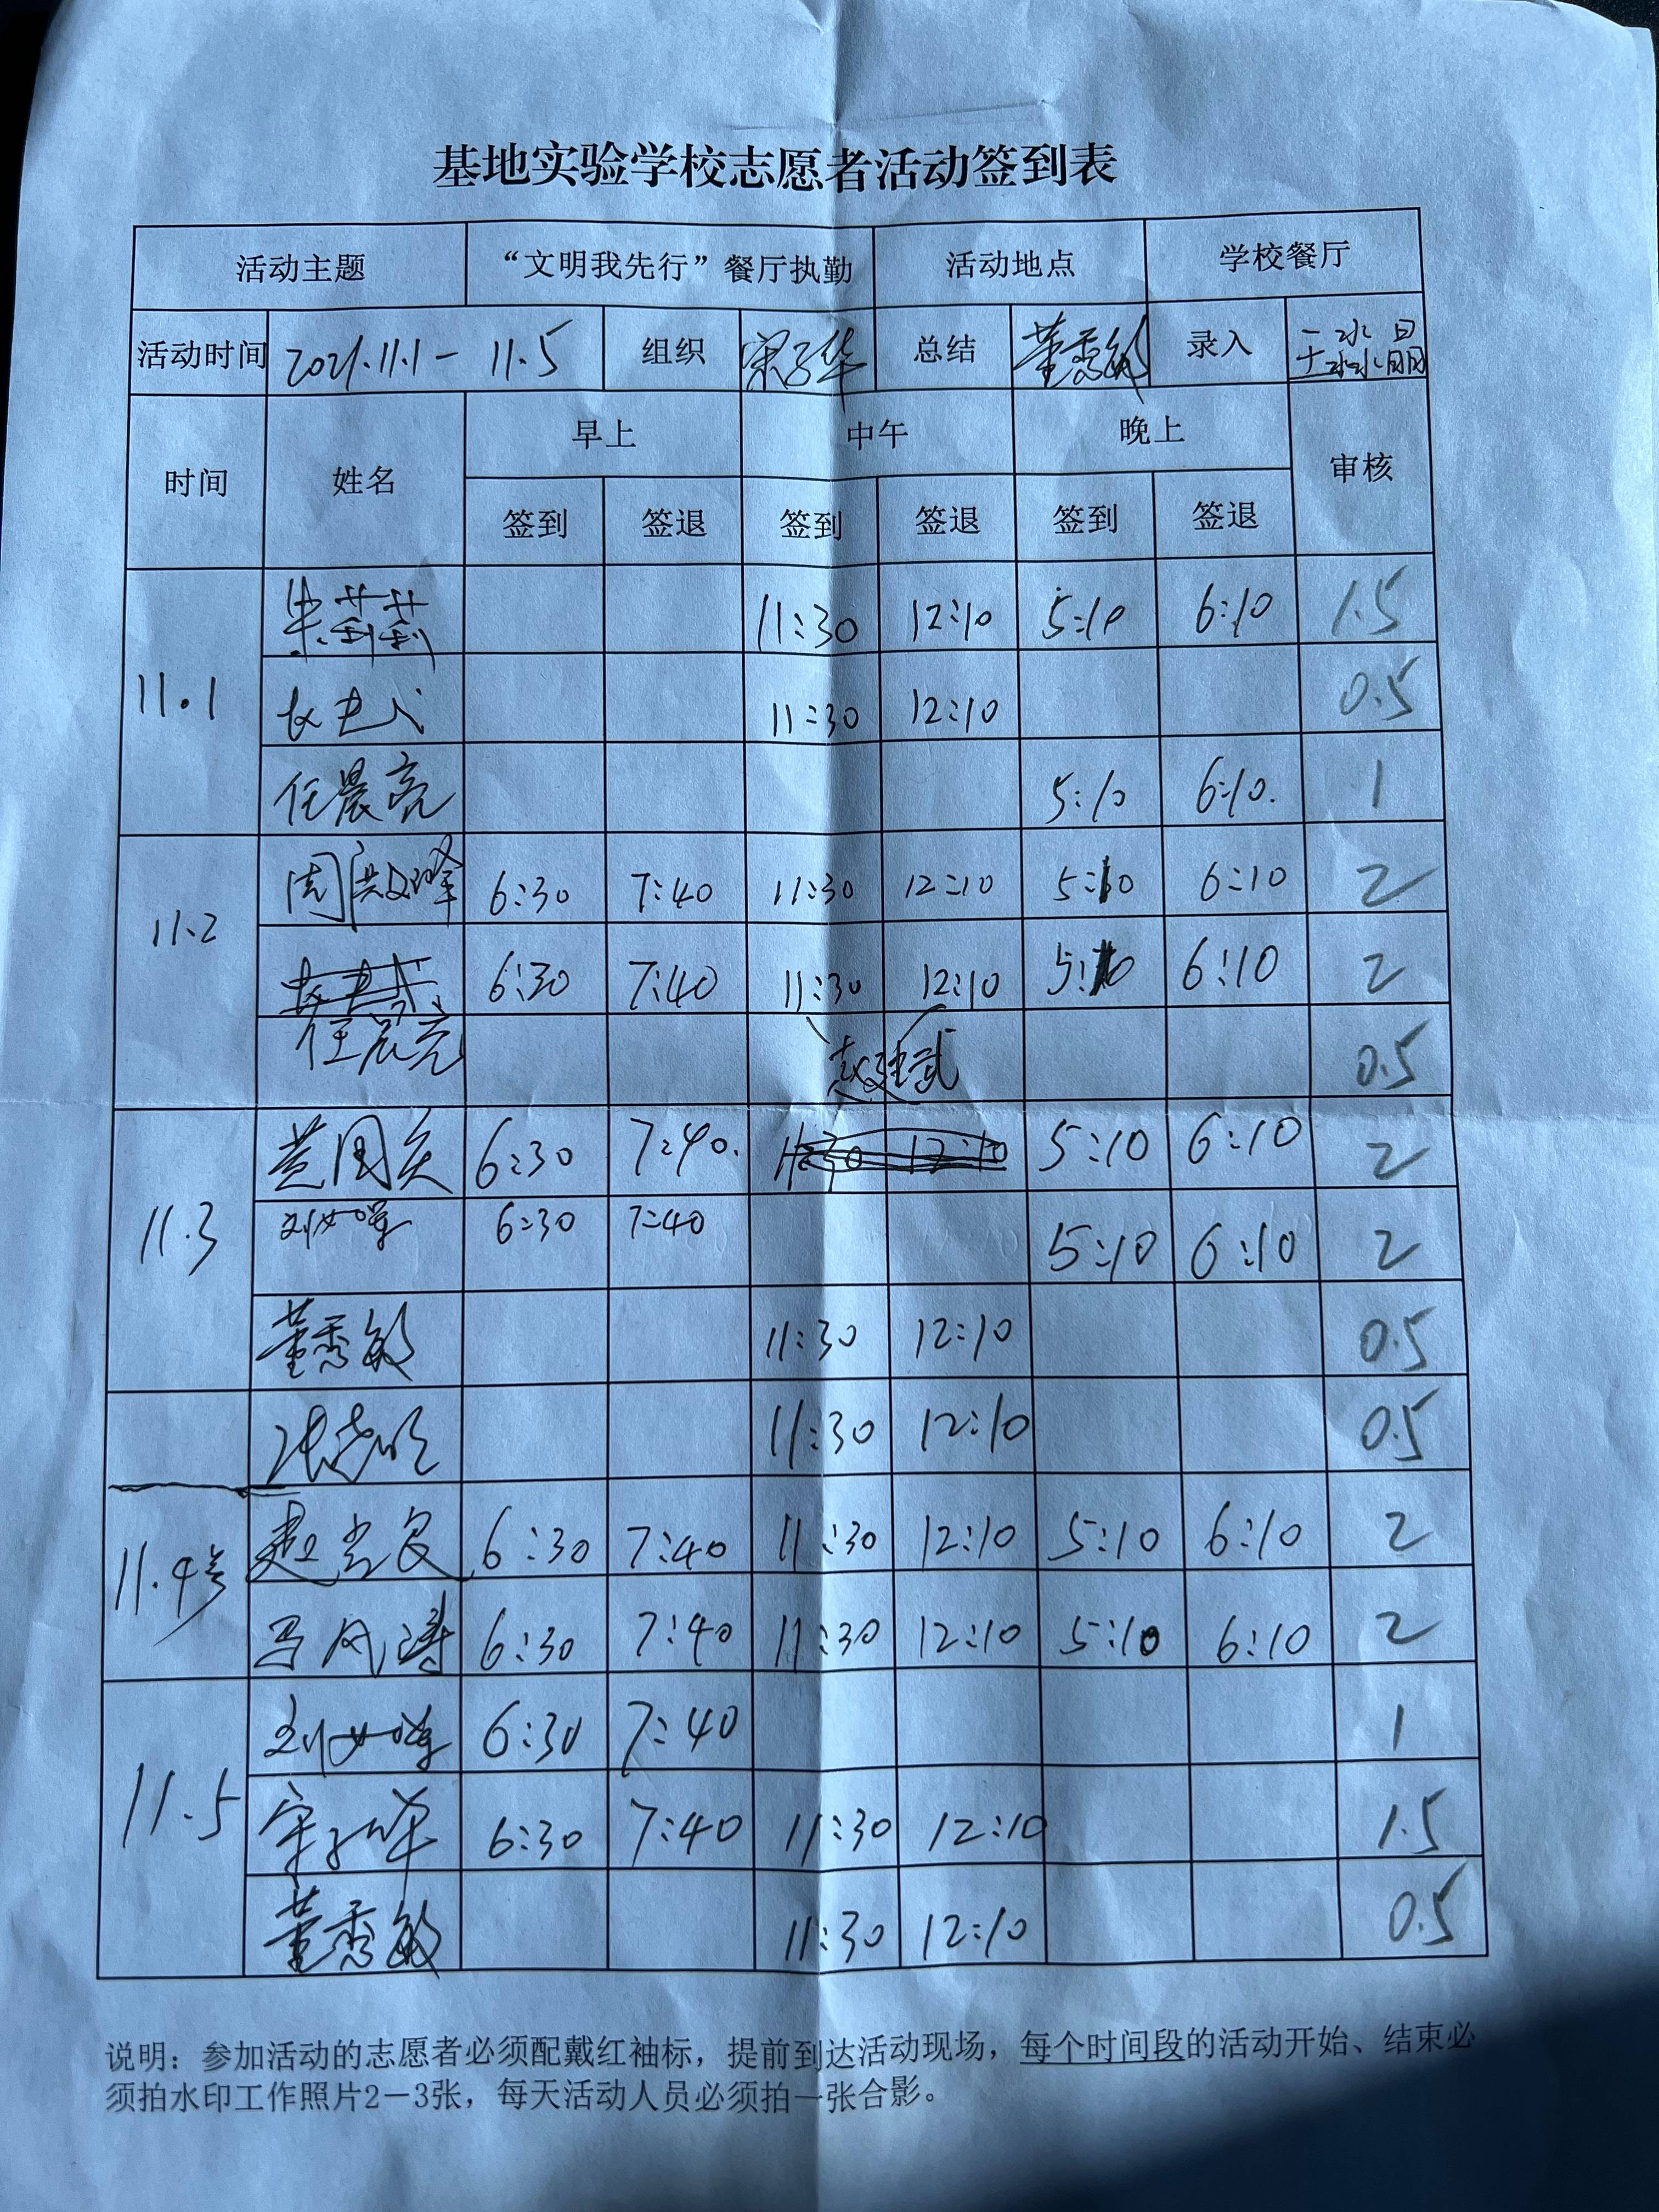 基地实验学校志愿者活动签到表
活动主题 “文明我先行”餐厅执勤 活动地点 学校餐厅
活动时间 2021.11.1- 11.5 组织 宋子华 总结 董秀敏 录入
时间 姓名 早上 中午 晚上 审核
签到 签退 签到 签退 签到 签退
11.1 朱莉莉 11:30 12:10 5:10 6:10 1.5
11:30 12:10 0.5
任晨亮 5:10 6:10. 1
11.2 周洪峰 6:30 7:40 11:30 12:10 5:10 6:10 2
6:30 7:40 11:30 12:10 5:10 6:10 2
任晨亮 赵建武 0.5
11.3 6:30 7:40. 11:30 12:10 5:10 6:10 2
6:30 7:40 5:10 6:10 2
董秀敏 11:30 12:10 0.5
11:30 12:10 0.5
11.4号 6:30 7:40 11:30 12:10 5:10 6:10 2
马风涛 6:30 7:40 11:30 12:10 5:10 6:10 2
11.5 6:30 7:40 1
宋子华 6:30 7:40 11:30 12:10 1.5
董秀敏 11:30 12:10 0.5
说明：参加活动的志愿者必须配戴红袖标，提前到达活动现场，每个时间段的活动开始、结束必
须拍水印工作照片2－3张，每天活动人员必须拍一张合影。